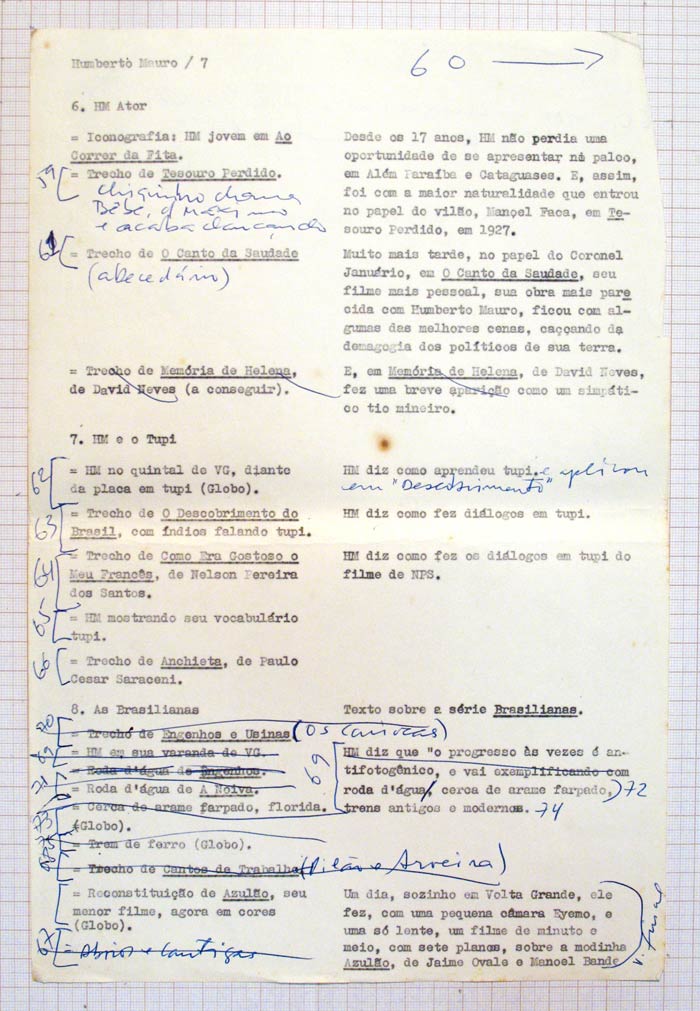 Humberto Mauro / 7
60
6. HM Ator
= Iconografia: HM jovem em Ao
Correr da Fita.
59
= Trecho de Tesouro Perdido.
chiquinho chama
Bebe, o
e acaba dançando
61
= Trecho de O Canto da Saudade
(abecedário)
= Trecho de Memória de Helena,
de David Neves (a conseguir).
Desde os 17 anos, HM não perdia uma
oportunidade de se apresentar no palco,
em Além Paraíba e Cataguases. E, assim,
foi com a maior naturalidade que entrou
no papel do vilão, Manoel Faca, em Te-
souro Perdido, em 1927.
Muito mais tarde, no papel do Coronel
Januário, em O Canto da Saudade, seu
filme mais pessoal, sua obra mais pare
cida com Humberto Mauro, ficou com al-
gumas das melhores cenas, caçoando da
demagogia dos políticos de sua terra.
E, em Memória de Helena, de David Neves,
fez uma breve aparição como um simpáti-
co tio mineiro.
7. HM e o Tupi
62
= HM no quintal de VG, diante
da placa em tupi (Globo).
HM diz como aprendeu tupi. e aplicou
em "Descobrimento"
63
= Trecho de O Descobrimento do
Brasil, com índios falando tupi.
HM diz como fez diálogos em tupi.
64
= Trecho de Como Era Gostoso o
Meu Francês, de Nelson Pereira
dos Santos.
HM diz como fez os diálogos em tupi do
filme de NPS.
65
= HM mostrando seu vocabulário
tupi.
66
= Trecho de Anchieta, de Paulo
Cesar Saraceni.
8. As Brasilianas
Texto sobre a série Brasilianas.
= Trecho de Engenhos e Usinas (Os Cariocas)
= HM em sua varanda de VG.
= Roda d'água de Engenhos.
71
= Roda d'água de A Noiva.
73
= Cerca de arame farpado, florida.
(Globo).
= Trem de ferro (Globo).
= Trecho de Cantos de Trabalho (Pilão e Aroeira)
69
HM diz que "o progresso às vezes é an-
tifotogênico, e vai exemplificando com
roda d'água, cerca de arame farpado, 72
trens antigos e modernos. 74
= Reconstituição de Azulão, seu
menor filme, agora em cores
(Globo).
67
= Aboios e Cantigas
Um dia, sozinho em Volta Grande, ele
fez, com uma pequena câmara Eyemo, e
uma só lente, um filme de minuto e
meio, com sete planos, sobre a modinha
Azulão, de Jaime Ovale e Manoel Bande
v. final